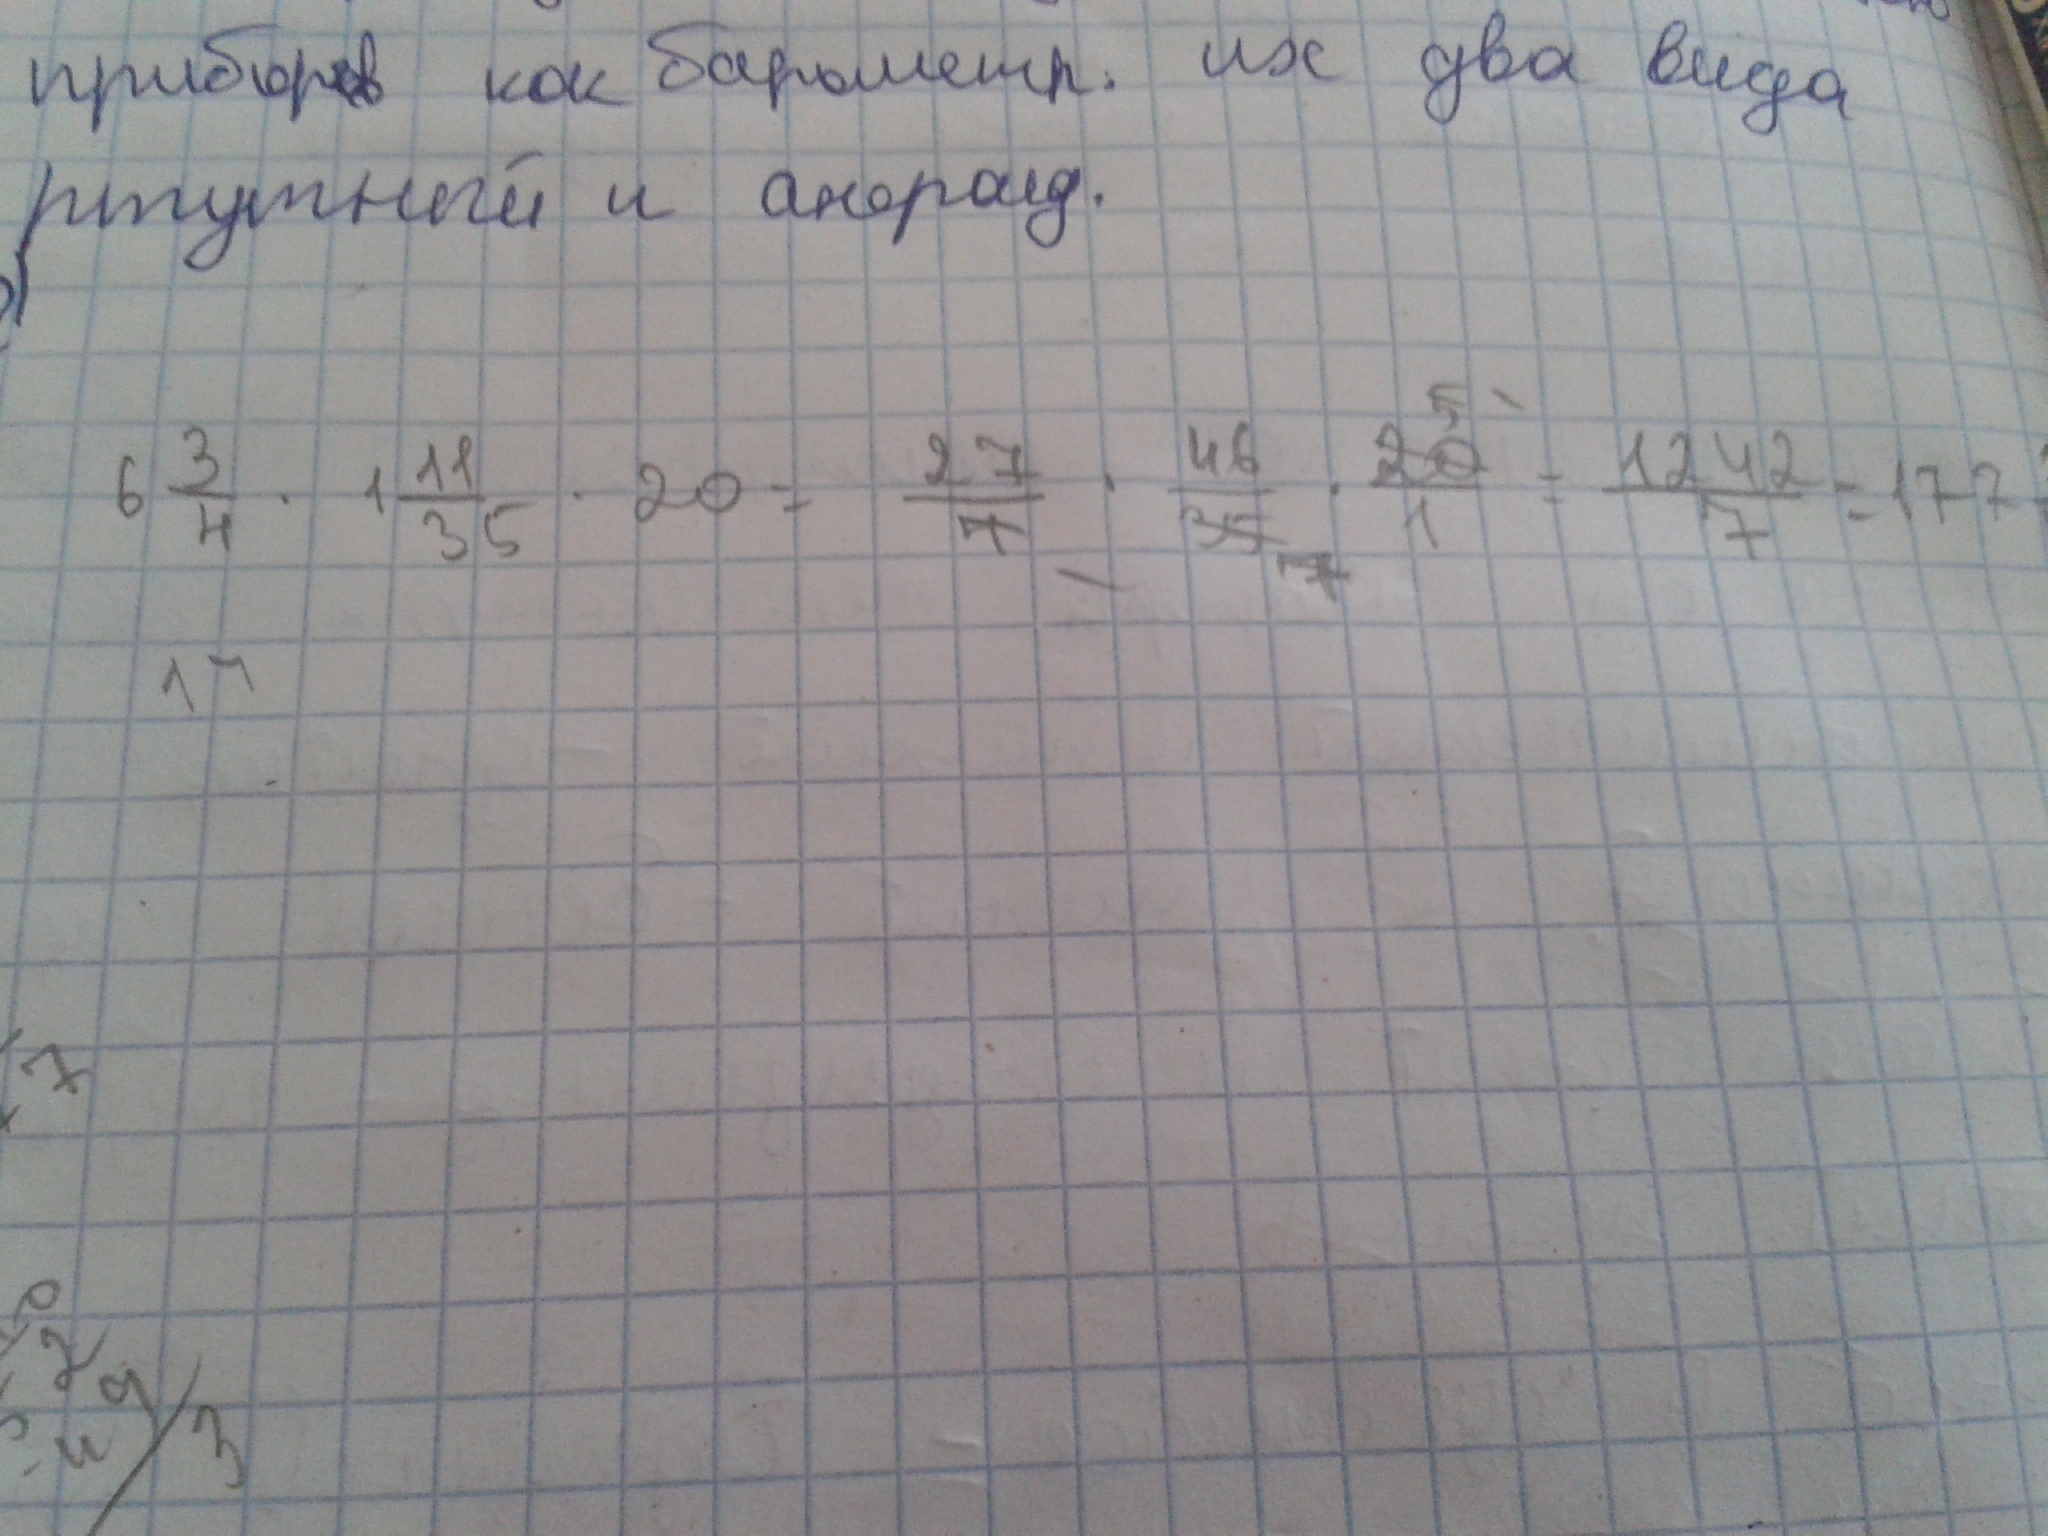 приборов как барометр. их два вида
ртутный и анероид.
6 3/4 · 1 11/35 · 20 = 27/7 · 46/35 · 20/1 = 1242/7 = 177
5
7
17
7
2
9
4 3